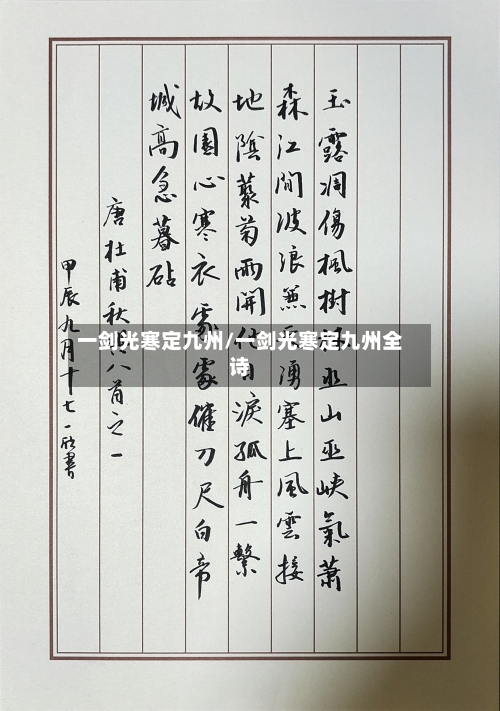 玉露凋傷楓樹巫山巫峽氣蕭
森江間波浪兼湧塞上風雲接
地陰叢菊兩開他日淚孤舟一繫
故園心寒衣處處催刀尺白帝
城高急暮砧
唐杜甫秋八首之一
甲辰九月十七一書
一剑光寒定九州/一剑光寒定九州全
诗